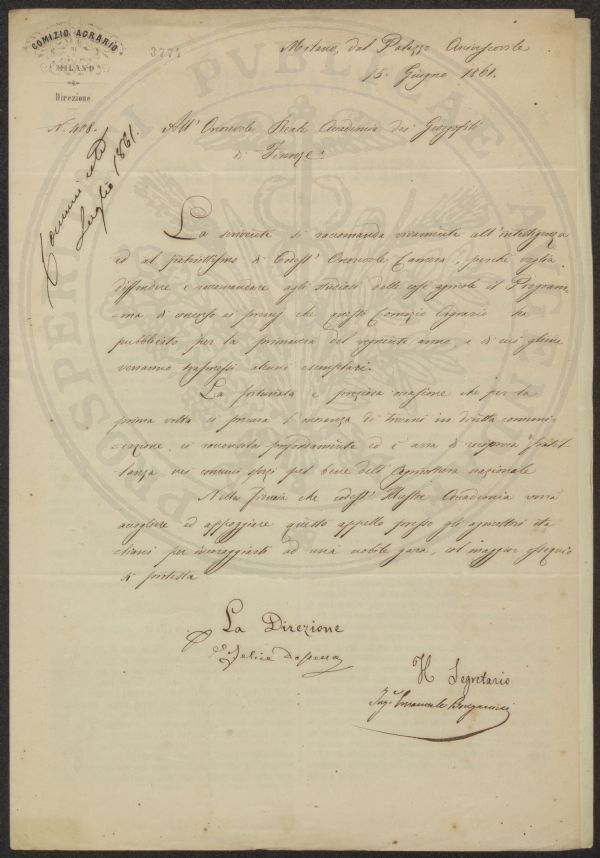 COMIZIO AGRARIO
DI
MILANO
Direzione
N. 408.
3774
Milano, dal Palazzo Arcivescovile
15. Giugno 1861.
All' Onorevole Reale Accademia dei Georgofili
di Firenze.
Luglio 1861.
La scrivente si raccomanda vivamente all'intelligenza
ed al patriottismo di Codest' Onorevole Camera, perchè voglia
diffondere e raccomandare agli studiosi delle cose agricole il Program-
ma di concorso ai premj che questo Comizio Agrario ha
pubblicato per la primavera del vegnente anno, e di cui gliene
verranno trasmessi alcuni esemplari.
La fortunata e preziosa occasione che per la
prima volta ci procura l' di trovarci in diretta comuni-
cazione, ci racconsola profondamente ed è arra di reciproca fratel-
lanza nei comuni sforzi pel bene dell' Agricoltura nazionale
Nella fiducia che codest' Illustre Accademia vorrà
accogliere ed appoggiare questo appello presso gli agricoltori ita-
liani per incoraggiarli ad una nobile gara, col maggior ossequio
si protesta
La Direzione
Felice
Il Segretario
Ing. Emanuele
PUBLICAE
PROSPERITATI